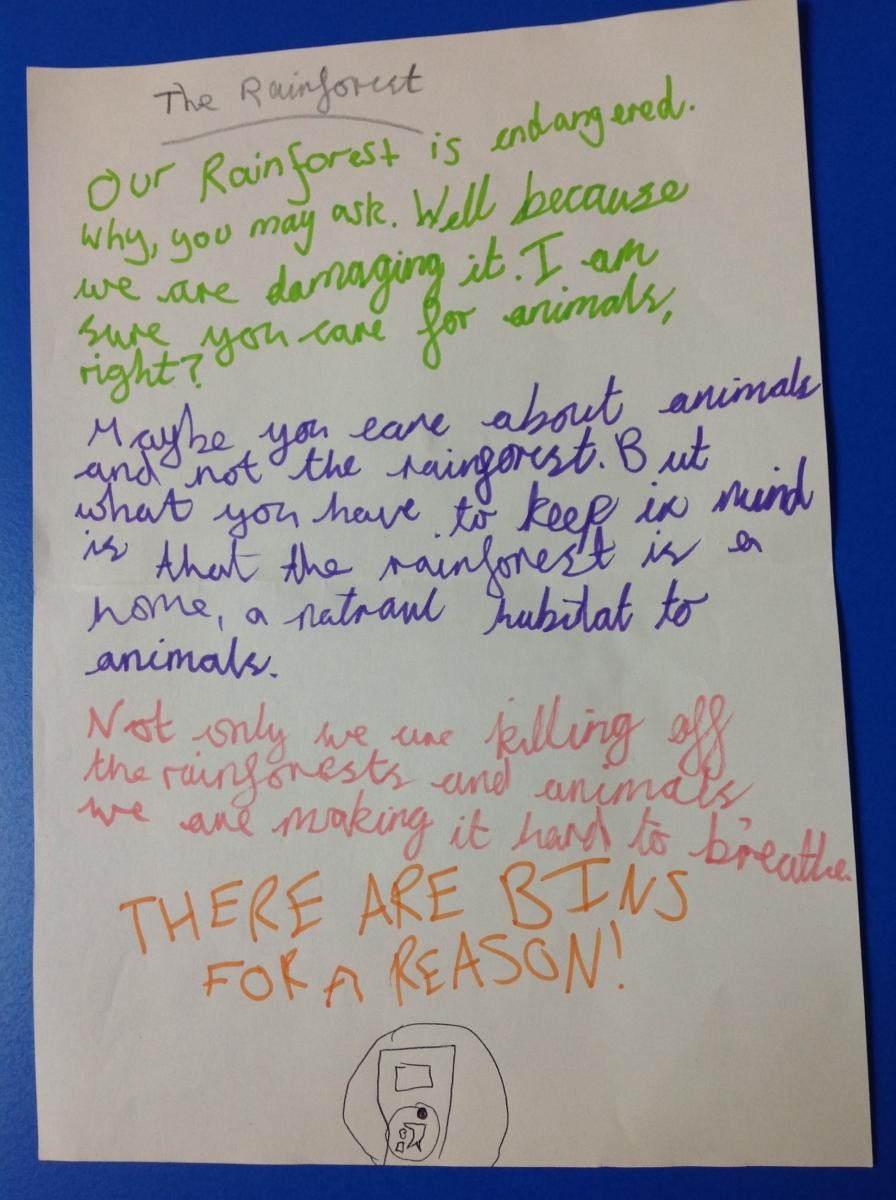 The Rainforest
Our Rainforest is endangered.
Why, you may ask. Well because
we are damaging it. I am
sure you care for animals,
right?
Maybe you care about animals
and not the rainforest. But
what you have to keep in mind
is that the rainforest is a
home, a natraul hubitat to
animals.
Not only we are killing off
the rainforests and animals
we are making it hard to breathe.
THERE ARE BINS
FOR A REASON!